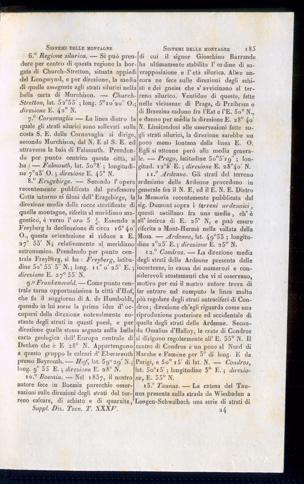 SISTEMI DELLE MONTAGNE
SISTEMI DELLE MONTAGNE 185
6.° Regione silurica. — Si può prendere
per centro di questa regione la borgata
di Church-Stretton, situata appiedi
del Longmynd, e per direzione, la media
di quelle assegnate agli strati silurici nella
bella carta di Murchison. — Church-
Stretton, lat. 52°35′; long. 5°10′20″ O.;
direzione E. 42° N.
7.° Cornovaglia — La linea dietro la
quale gli strati silurici sono sollevati sulla
costa S. E. della Cornovaglia si dirige,
secondo Murchison, dal N. E al S. E. ed
attraversa la baia di Falmouth. Prendendo
per punto centrico questa città, si
ha: — Falmouth, lat. 50°8′; longitudine
7°23′ O.; direzione E. 45° N.
8.° Erzgebirge. — Secondo l'opera
recentemente pubblicata dal professore
Cotta intorno ai filoni dell'Erzgebirge, la
direzione media delle rocce stratificate di
quelle montagne, riferita al meridiano magnetico,
è verso l'ora 5 ½. Essendo a
Freyberg la declinazione di circa 16° 40′
O., questa orientazione si riduce a E.
27° 55′ N; relativamente al meridiano
astronomico. Prendendo per punto centrale
Freyberg, si ha: Freyberg, latitudine
50° 55′ 5″ N.; long. 11° 0′ 25″ E.;
direzione E. 27° 55′ N.
9.° Frankenwald. — Come punto centrale
torna opportunissima la città d'Hof,
che fu il soggiorno di A. de Humboldt,
quando in lui sorse la prima idea d'occuparsi
della direzione notevolmente costante
degli strati in questi paesi, e per
direzione quella stessa segnata sulla bella
carta geologica dell'Europa centrale di
Dechen che è E. 28° N. Appartengono
a questo gruppo le calcari d'Ebersreuth
presso Bayreuth. — Hof, lat. 59° 29′ N.,
long. 9° 35′ E.; direzione E. 28° N.
10.° Boemia. — Nel 1837, il nostro
autore fece in Boemia parecchie osservazioni
sulle direzioni degli strati del terreno
calcare, di schisto e di quarzite,
Suppl. Dis. Tecn. T. XXXV.
di cui il signor Gioachino Barrande
ha ultimamente stabilito l'ordine di sovrapposizione
e l'età silurica. Altre ancora
ne fece sulle direzioni degli schisti
e dei gneiss che s'avvicinano al terreno
silurico. Ventidue di queste, fatte
nelle vicinanze di Praga, di Przibram e
di Brzezina cadono fra l'Est e l'E. 50° N.,
e danno per media la direzione E. 28° 40′
N. Limitandosi alle osservazioni fatte sogli
strati silurici, la direzione sarebbe un
poco meno lontana della linea E. O.
Egli si attenne però alla media generale.
— Praga, latitudine 50°5′19″; longitud.
12°5′ E.; direzione E. 28° N.
11.° Ardenne. Gli strati del terreno
ardesiano delle Ardenne procedono in
generale fra il N. E. ed il E. N. E. Dietro
la Memoria recentemente pubblicata dal
sig. Dumont sopra i terreni ardesiani;
questi oscillano fra una media, ch'è
all'incirca di E. 25° N. e può essere
riferita a Mont-Hermé nella vallata della
Mosa. — Ardenne, lat. 49°53′; longitudine
2°25′ E.; direzione E. 25° N.
12.° Condroz. — La direzione media
degli strati delle Ardenne presenta delle
incertezze, in causa dei numerosi e considerevoli
smottamenti che vi si osservano,
motivo per cui il nostro autore trova di
far entrare nel computo la linea molto
più regolare degli strati antraciferi di Condroz;
direzione ch'egli riguarda come una
riproduzione posteriore ed accidentale di
quella degli strati delle Ardenne. Secondo
Omalius d'Halloy, le creste di Condroz
si dirigono regolarmente all'E. 35° N. Il
centro di Condroz è un poco al Nord di
Marche e Famène per 3° di long. E da
Parigi, e 50° 15′ di lat. N. — Condroz,
lat. 50°15′; longitudine 3° E.; direzione,
E. 35° N.
13.° Taunus. — La catena del Taunus
presenta sulla strada da Wiesbaden a
Langen-Schwalbach una serie di strati di
24